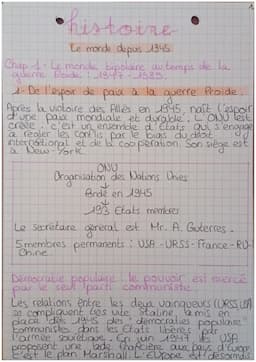 histoire
Le monde depuis 1945.
Chap 1 - Le monde bipolaire au temps de la
guerre froide : 1947 - 1989.
1 - De l'espoir de paix à la guerre froide :
Après la victoire des Alliés en 1945, naît l'espoir
d'une paix mondiale et durable. L'ONU est
créée : c'est un ensemble d'Etats qui s'engage
à régler les conflis par le biais du droit
international et de la coopération. Son siège est
à New-York.
ONU
Organisation des Nations Unies
fondé en 1945
193 Etats membres
Le secrétaire général est Mr. A. Guterres.
5 membres permanents : USA - URSS - France - RU -
Chine.
Démocratie populaire : le pouvoir est exercé
par le seul parti communiste.
Les relations entre les deux vainqueurs (URSS, USA)
se compliquent très vite. Staline a mis en
place dès 1945 des "démocraties populaires"
communistes dans les Etats libérés par
l'armée soviétique. En juin 1947 les USA
proposent une aide financière aux pays d'Europe
c'est le plan Marshall. L'Europe est désormais